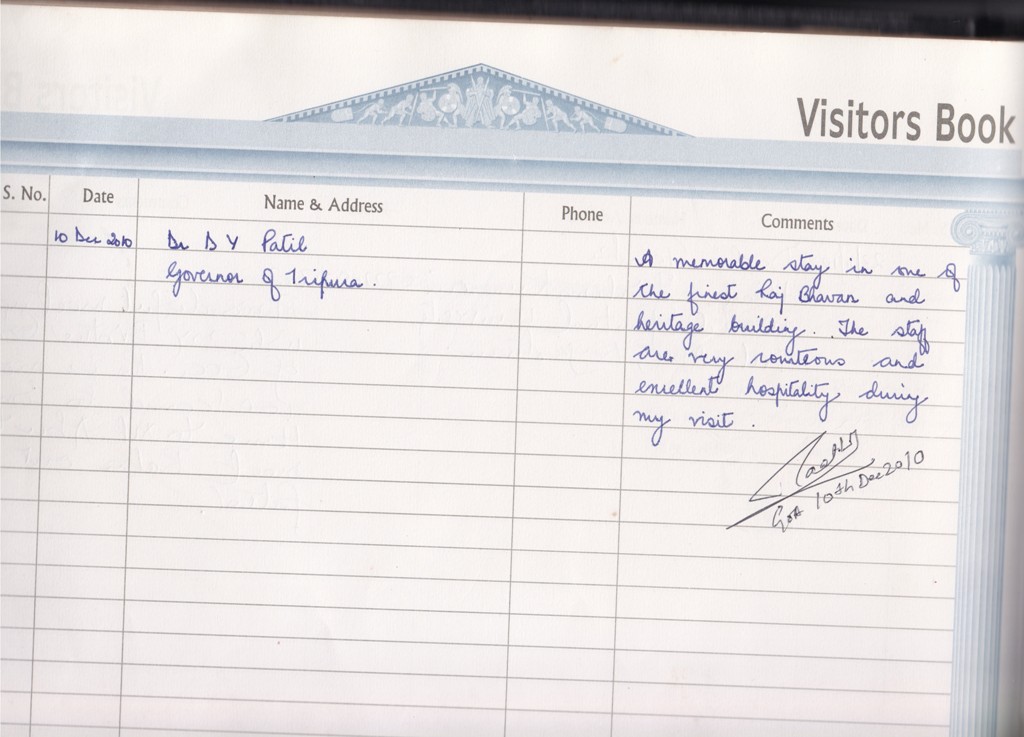 Visitors Book
S. No. Date Name & Address Phone Comments
10 Dec 2010 Dr D Y Patil
Governor of Tripura.
A memorable stay in one of
the finest Raj Bhavan and
heritage building. The staff
are very courteous and
excellent hospitality during
my visit.
Goa 10th Dec 2010